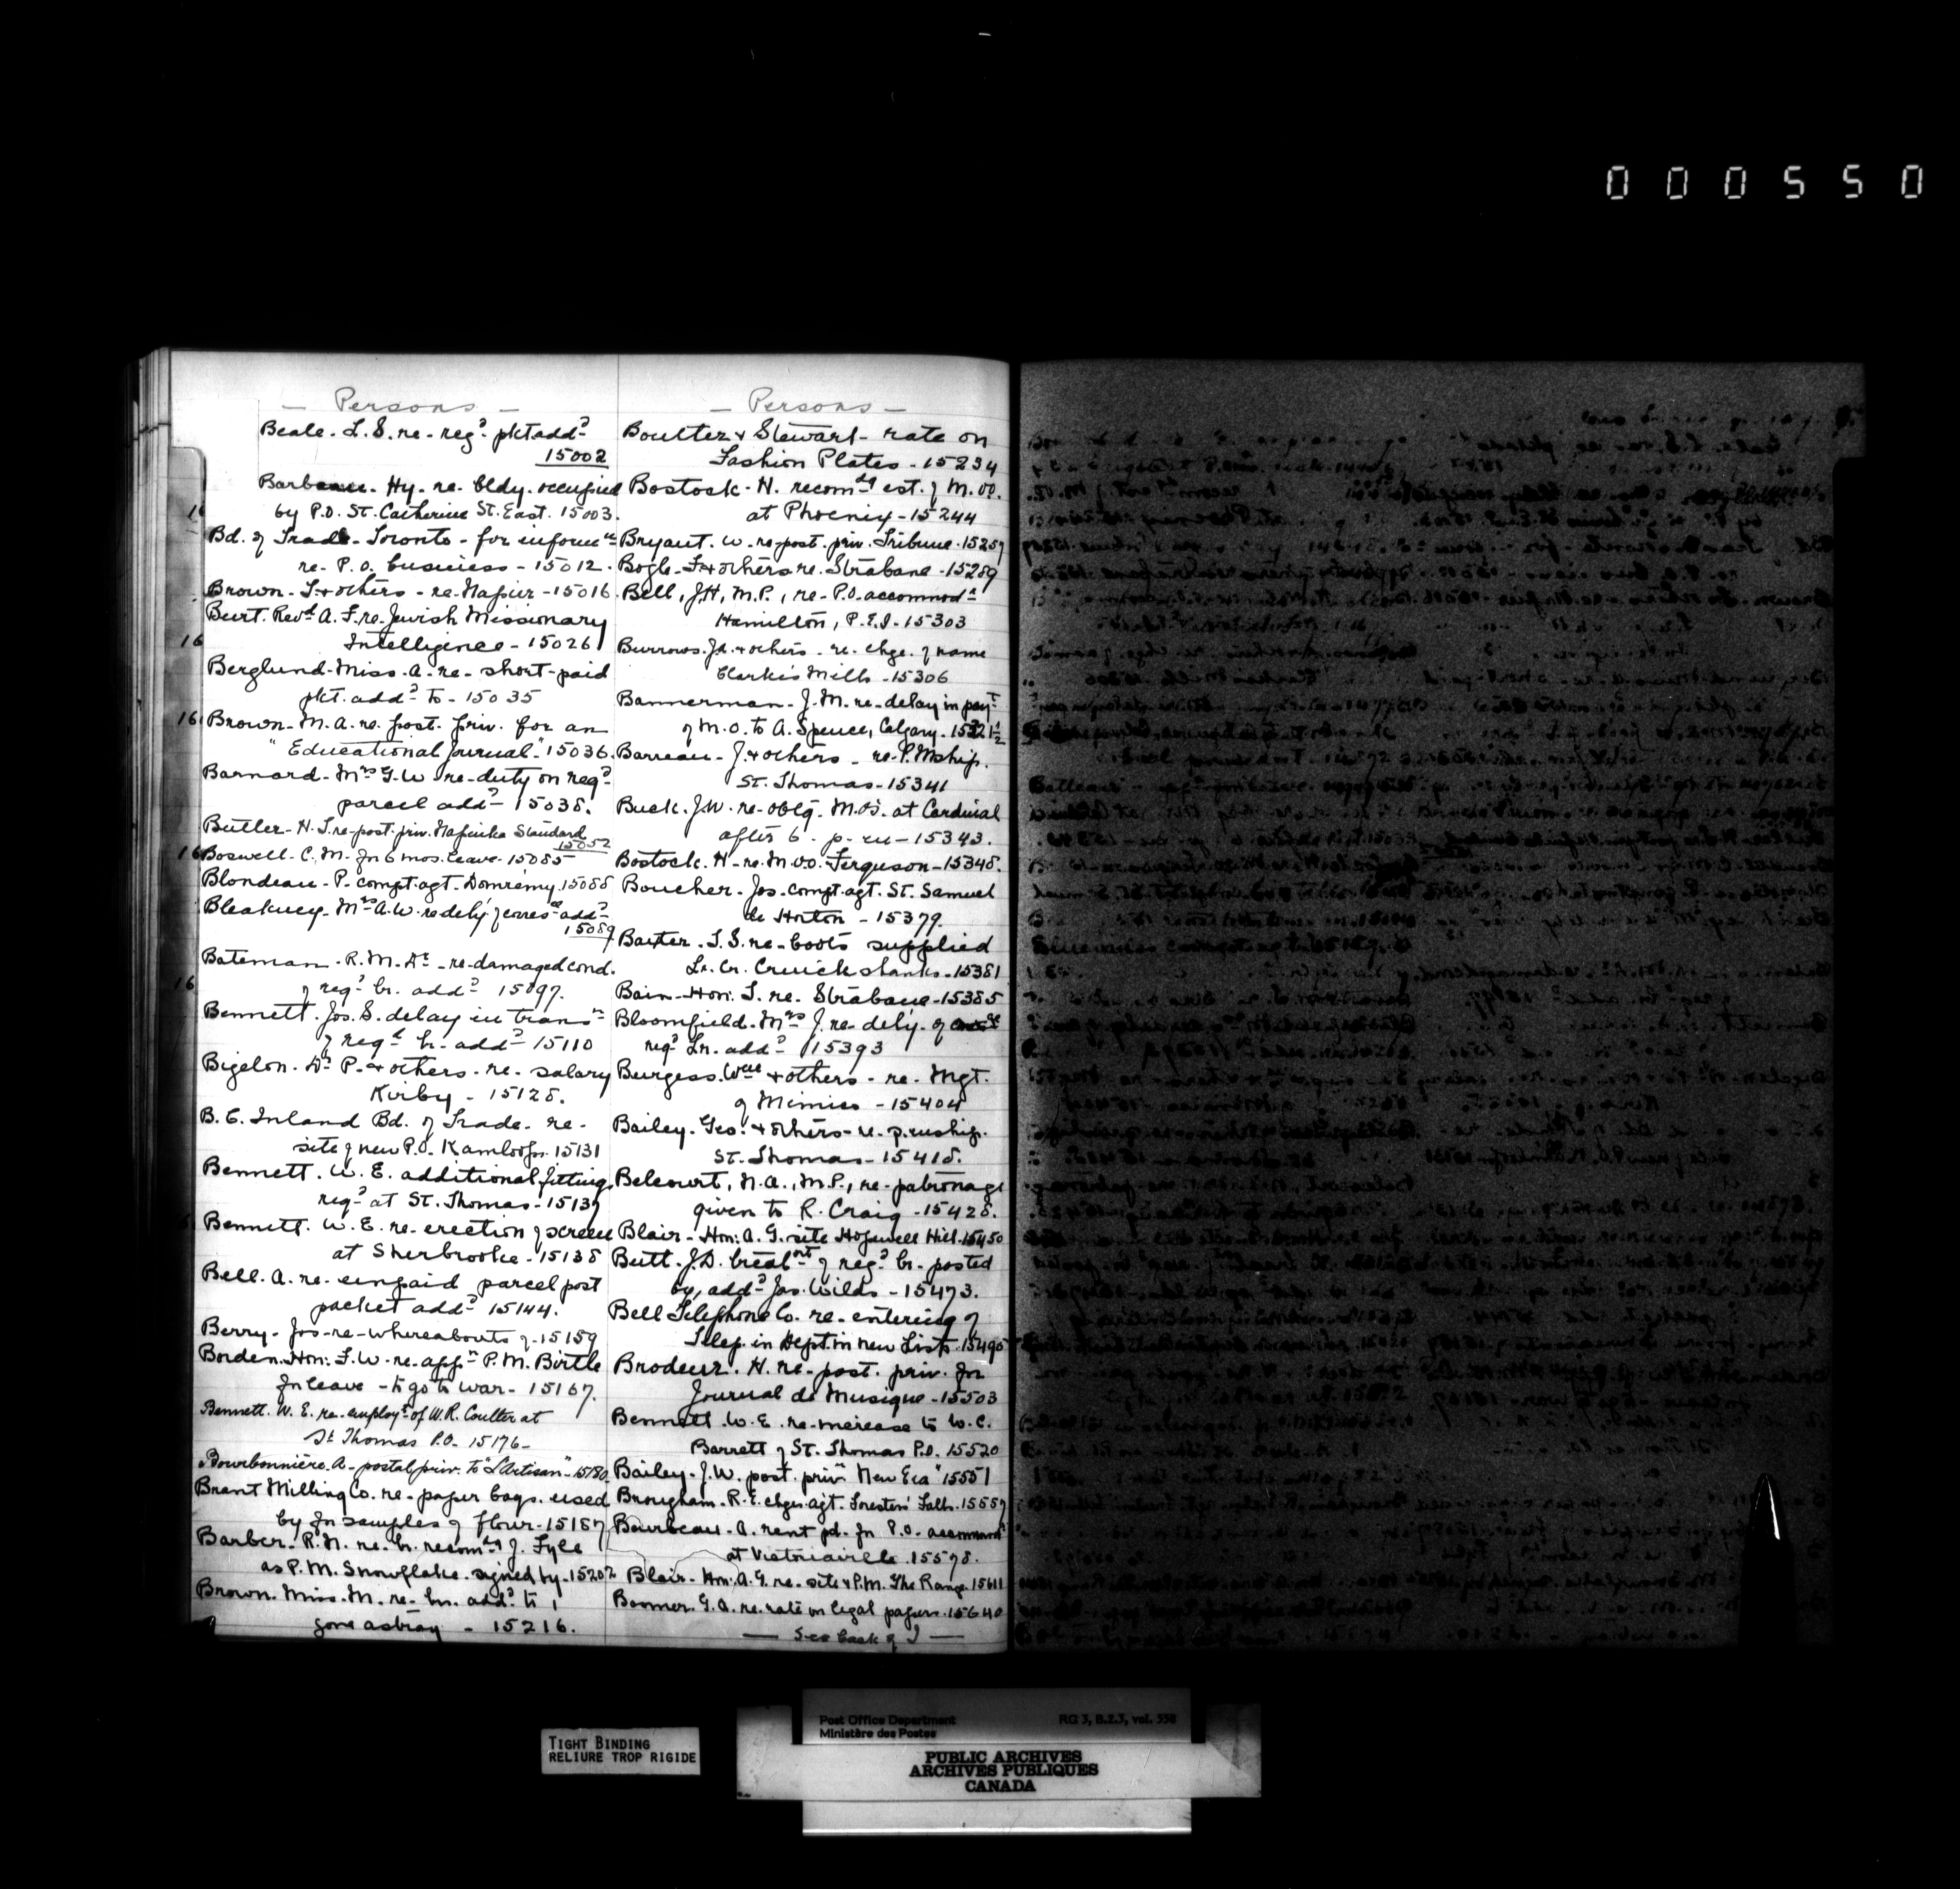 000550
— Persons —
Beale. L. S. re. reg'd pkt add'd
15002
Barbeau. Hy. re. bldg. occupied
by P.O. St. Catherine St. East. 15003.
Bd. of Trade. Toronto - for inform'n
re. P.O. business - 15012.
Brown - & others - re. Napier - 15016.
Burt. Rev'd A. F. re. Jewish Missionary
Intelligence - 15026
Berglund. Miss. A. re. short-paid
pkt. add'd to - 15035
Brown - M. A. re. post. priv. for an
"Educational Journal" 15036.
Barnard - Mrs G. W. re. duty on reg'd
parcel add'd 15038.
Butler - H. J. re. post. priv. Napinka Standard
15052
Boswell. C. M. for 6 mos. leave. 15085
Blondeau - P. compt. agt. Domremy. 15088
Bleakney - Mrs A. W. re dely of corres'ce add'd
15089
Bateman. R. M. Dr - re. damaged cond.
of reg'd lr. add'd 15097.
Bennett. Jos. S. delay in trans'n
of reg'd lr. add'd 15110
Bigelow. Dr P. & others - re. salary
Kirby - 15128.
B. C. Inland Bd. of Trade - re -
site of new P.O. Kamloops. 15131
Bennett. W. E. additional fittings
req'd at St. Thomas - 15137
Bennett. W. E. re - erection of screen
at Sherbrooke - 15138
Bell. A. re. unpaid parcel post
packet add'd 15144.
Berry - Jos - re - whereabouts of - 15159
Borden. Hon: F. W. re. app'n P. M. Birtle
for leave - to go to war - 15167.
Bennett. W. E. re. employt of W. R. Coulter at
St Thomas P.O. 15176 -
Bourbonnière. A - postal priv. to "L'Artisan" - 15180
Brant Milling Co. re - paper bags. used
by for samples of flour - 15187
Barber. R. N. re. lr. recom'dg J. Fyle
as P. M. Snowflake. signed by. 15202
Brown. Miss. M. re - lr. add'd to,
gone astray - 15216.
— Persons —
Boulter & Stewart - rate on
Fashion Plates - 15234
Bostock - H. recom'dg est. of M.OO.
at Phoenix - 15244
Bryant. W. re - post. priv. Tribune. 15257
Bogle - & others re. Strabane - 15289
Bell, J. H, M.P., re - P.O. accommod'n
Hamilton, P.E.I. - 15303
Burrows. Jd. & others - re. chge. of name
Clarkis Mills - 15306
Bannerman - J. M. re - delay in pay't
of M.O. to A. Spence, Calgary. 15321½
Barreau - J. & others - re. P. Mship.
St. Thomas - 15341
Buck. J. W. re - oblg. M.O's. at Cardinal
after 6. p. m - 15343.
Bostock. H - re. M. OO. Ferguson - 15348.
Boucher. Jos. compt. agt. St. Samuel
de Horton - 15379.
Baxter. J. S. re - boots supplied
Lr. Cr. Cruickshanks. 15381
Bain - Hon: T. re. Strabane - 15385
Bloomfield. Mrs J. re - dely. of
reg'd Lr. add'd 15393
Burgess. Wm & others - re. Mgt.
of Mimico - 15404
Bailey. Geo: & others - re. p. mship.
St. Thomas - 15418.
Belcourt, N. A., M.P., re - patronage
given to R. Craig - 15428.
Blair - Hon: A. G. site Hopewell Hill. 15450
Butt. J. D. treat'mt of reg'd lr. posted
by, add'd Jas. Wilds - 15473.
Bell Telephone Co. re - entering of
Telep. in Dept. in new Lists. 15490
Brodeur. H. re - post. priv. for
Journal de Musique - 15503
Bennett. W. E. re - increase to W. C.
Barrett of St. Thomas P.O. 15520
Bailey - J. W. post. priv. "New Era" 15551
Brougham. R. E. chges. agt. Foresters' Falls. 15557
Bourbeau - A. rent pd. for P.O. accommod'n
at Victoriaville. 15578.
Blair - Hon: A. G. re - site & P.M. The Range. 15611
Boomer. G. A. re. rate on legal papers. 15640
— See back of I —
TIGHT BINDING
RELIURE TROP RIGIDE
Post Office Department RG 3, B.2.3, vol. 558
Ministère des Postes
PUBLIC ARCHIVES
ARCHIVES PUBLIQUES
CANADA